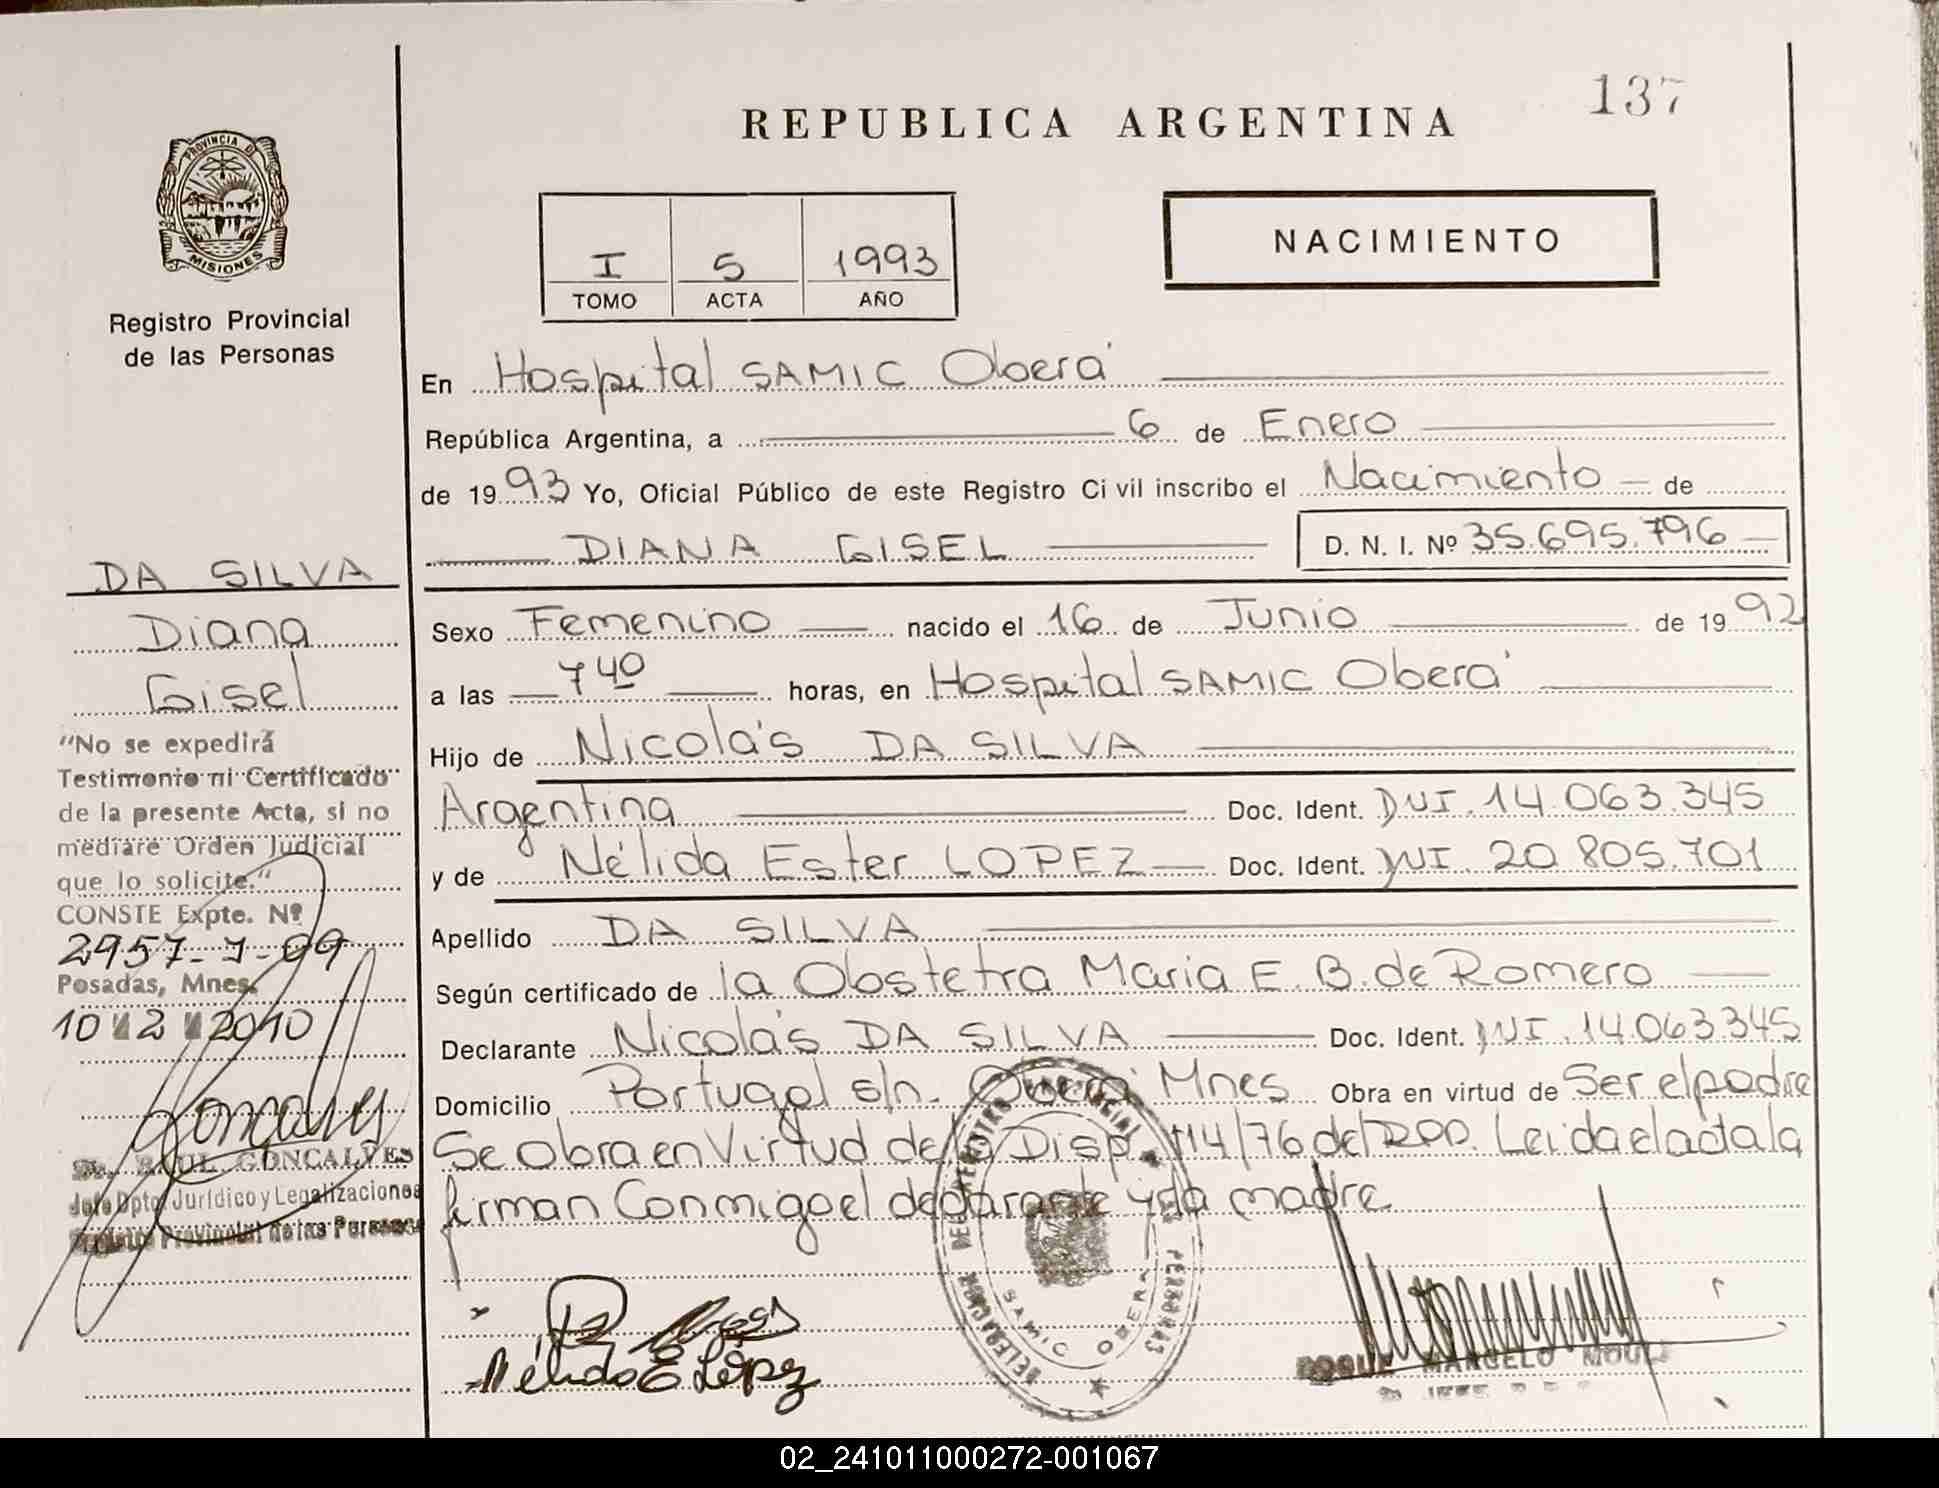 137
REPUBLICA ARGENTINA
PROVINCIA DE
MISIONES
Registro Provincial
de las Personas
I 5 1993
TOMO ACTA AÑO
NACIMIENTO
En Hospital SAMIC Oberá
República Argentina, a 6 de Enero
de 1993 Yo, Oficial Público de este Registro Civil inscribo el Nacimiento de
DIANA GISEL D. N. I. Nº 35.695.796
DA SILVA
Diana
Gisel
Sexo Femenino nacido el 16 de Junio de 1992
a las 7 40 horas, en Hospital SAMIC Oberá
Hijo de Nicolás DA SILVA
Argentina Doc. Ident. DNI. 14.063.345
y de Nélida Ester LOPEZ Doc. Ident. DNI. 20.805.701
Apellido DA SILVA
Según certificado de la Obstetra Maria E. B. de Romero
Declarante Nicolás DA SILVA Doc. Ident. DNI. 14.063.345
Domicilio Portugal s/n. Oberá Mnes Obra en virtud de Ser el padre
Se obra en Virtud de la Disp. 114/76 del RPP. Leida el acta la
firman Conmigo el declarante y la madre
"No se expedirá
Testimonio ni Certificado
de la presente Acta, si no
mediare Orden Judicial
que lo solicite."
CONSTE Expte. Nº
2957-J-09
Posadas, Mnes.
10 2 2010
Goncalves
Dr. RAUL GONCALVES
Jefe Dpto. Jurídico y Legalizaciones
Registro Provincial de las Personas
Nélida E López
DELEGACION
SAMIC OBERA
PERSONAS
ROQUE MARCELO
02_241011000272-001067